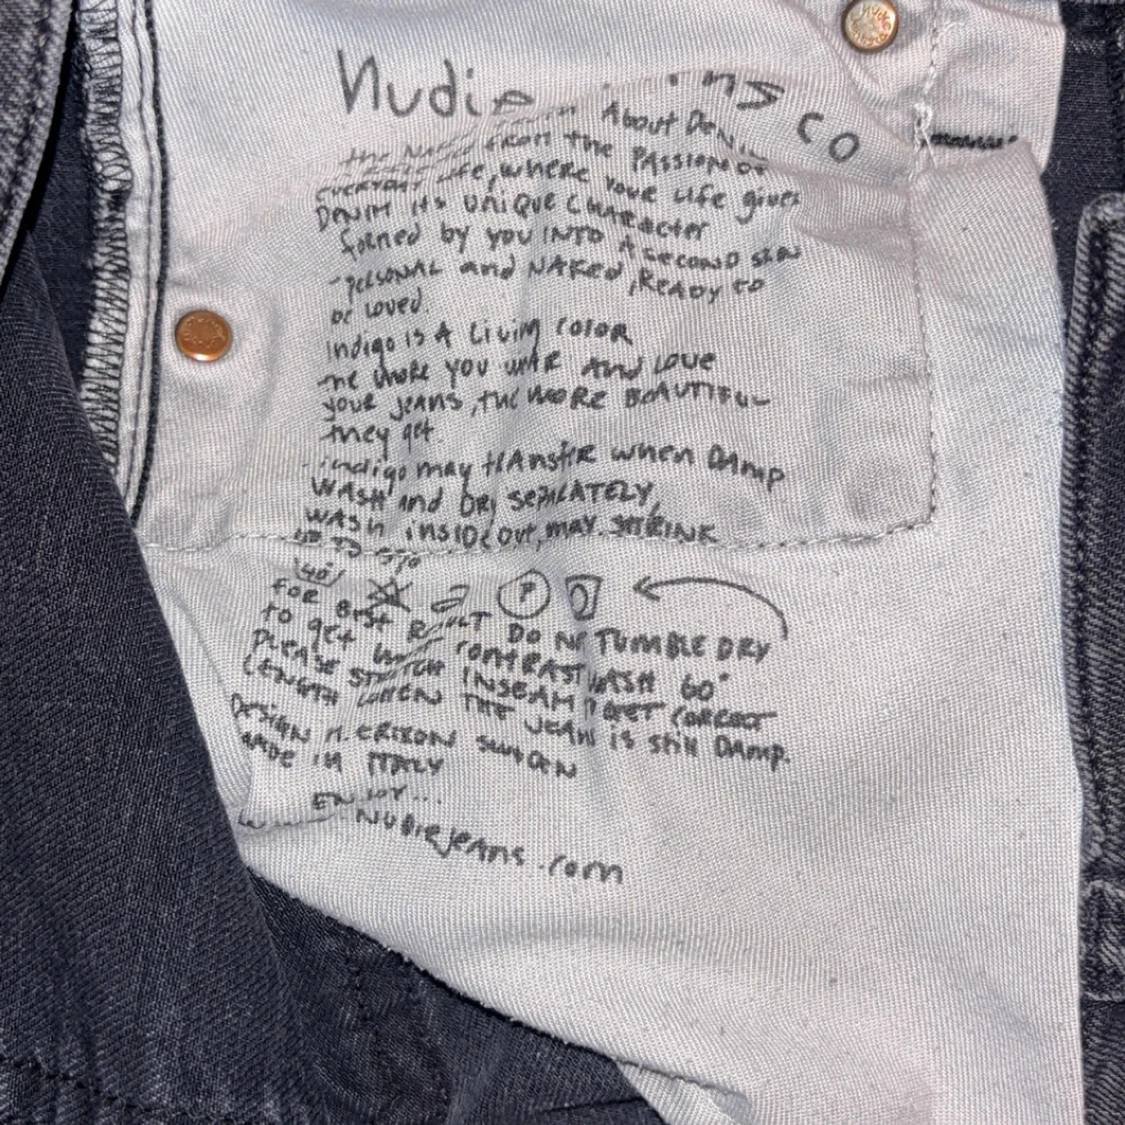 Nudie ns co
About Den
the Na from the Passion of
everyday life, where your life gives
Denim its unique character
formed by you into a second skin
- personal and naked, ready to
be loved.
Indigo is a living color
the more you wear and love
your jeans, the more beautiful
they get.
indigo may transfer when damp
wash and dry separately,
wash inside out, may shrink
up to
40° P
for best result do not tumble dry
to get contrast wash 60°
please stretch inseam to get correct
length when the jeans is still damp.
Design M. Erixon Sweden
made in Italy
Enjoy...
nudiejeans.com